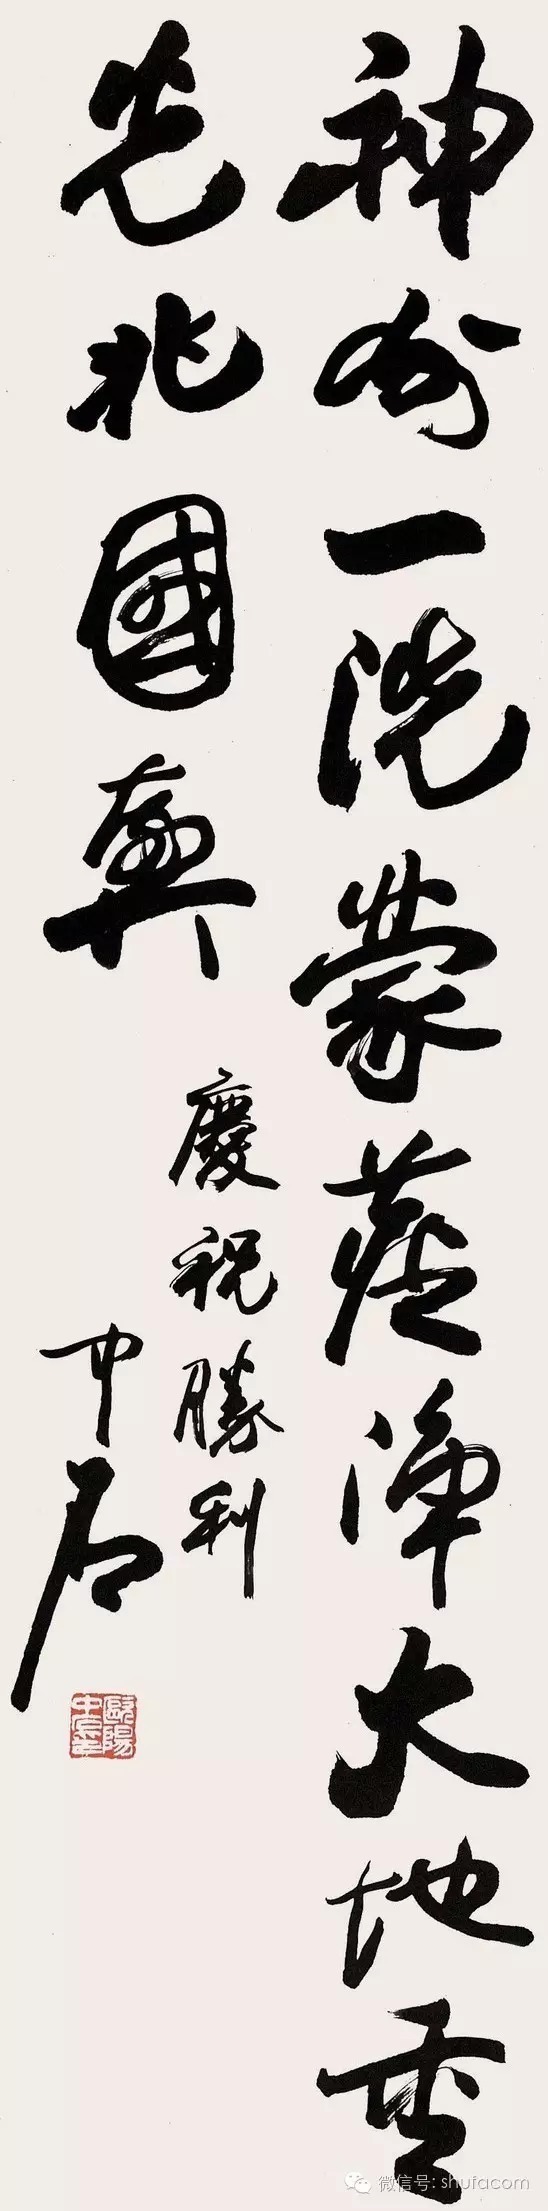 神州一洗蒙蒼淨大地重
光兆國興
慶祝勝利
中石
歐陽
中石
微信号: shufacom